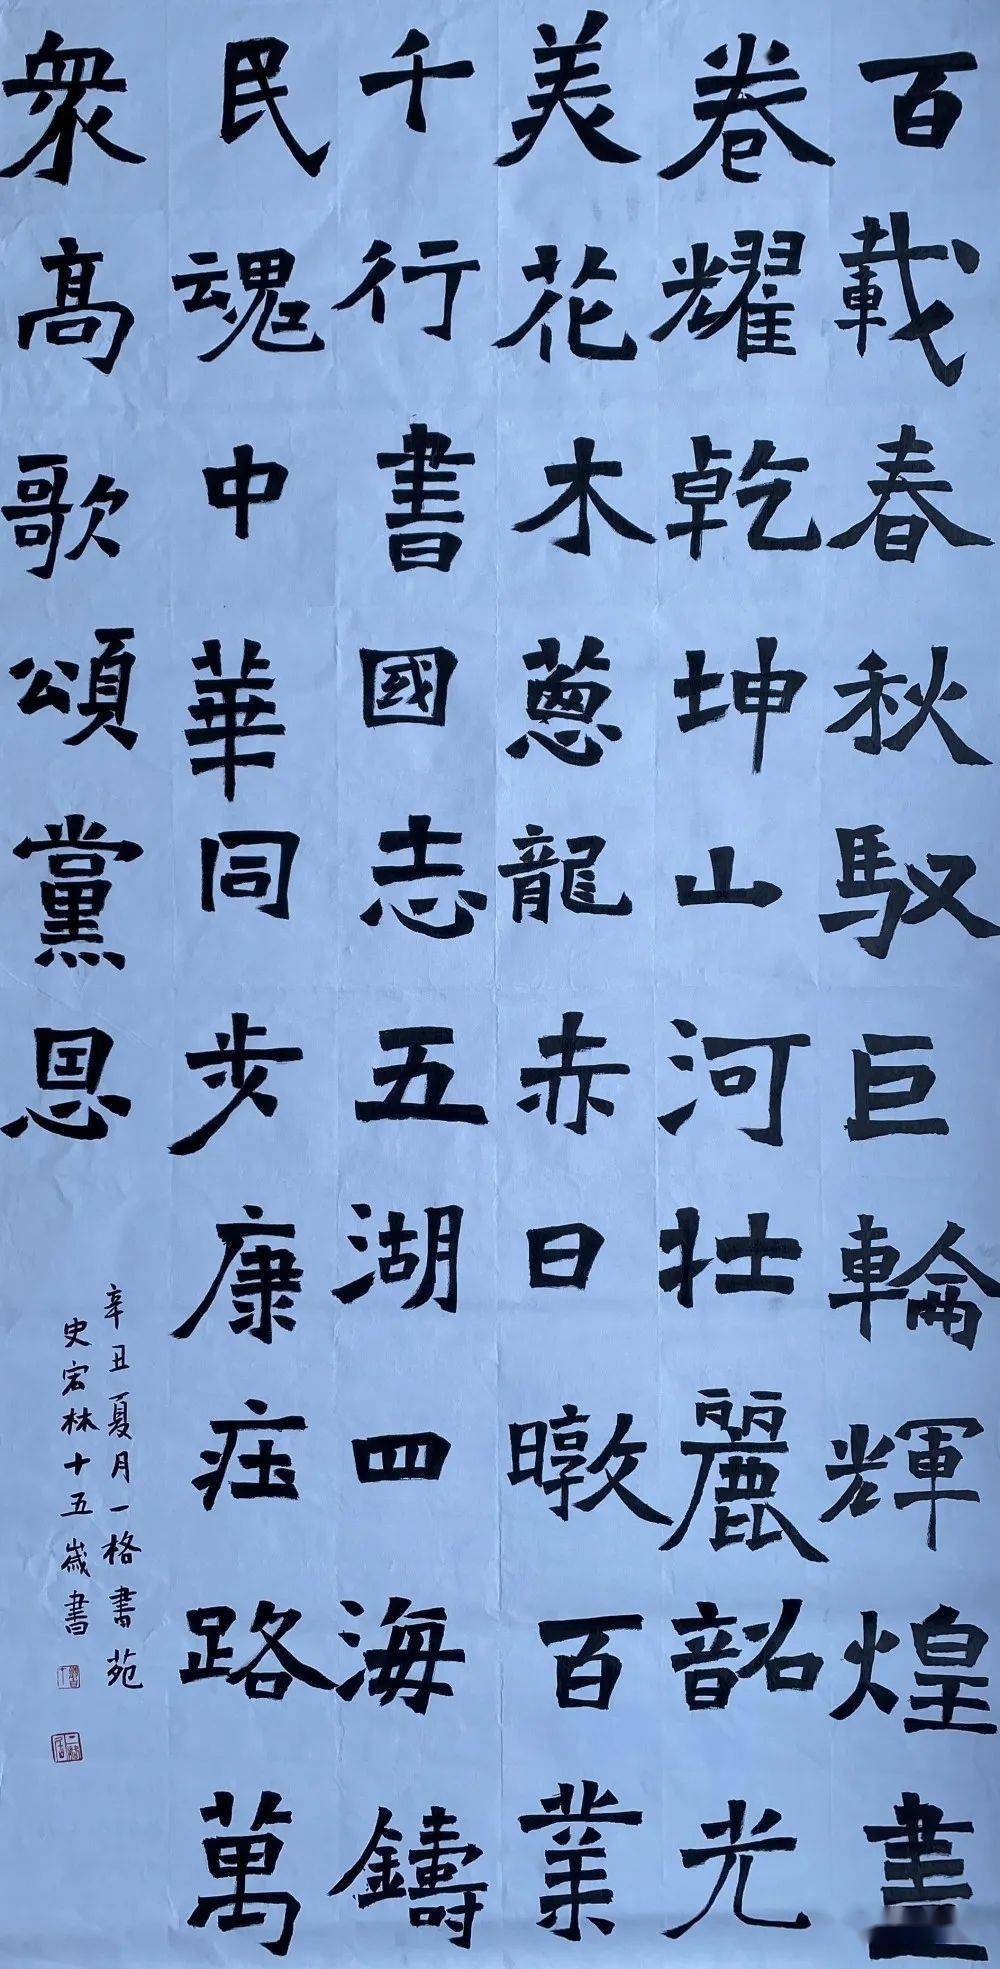 百載春秋馭巨輪輝煌畫
卷耀乾坤山河壯麗韶光
美花木蔥龍赤日暾百業
千行書國志五湖四海鑄
民魂中華同步康㽵路萬
衆髙歌頌黨恩
辛丑夏月一格書苑
史宏林十五歲書